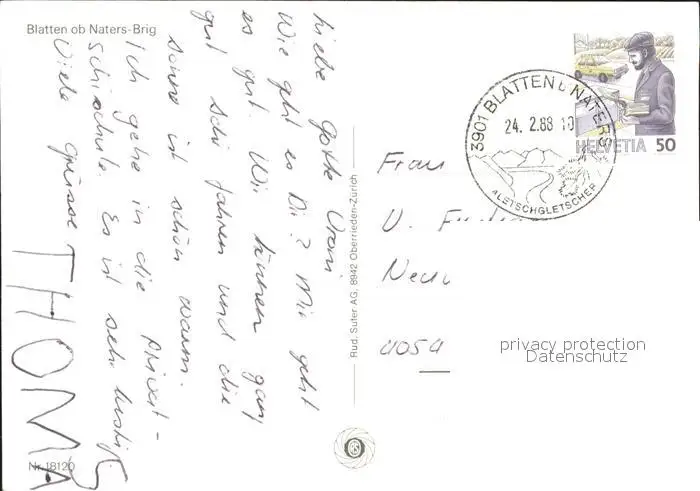 Blatten ob Naters-Brig
Liebe Gotte Vroni
Wie geht es Dir? Mir geht
es gut. Wir können ganz
gut Ski fahren und die
Sonne ist schön warm.
Ich gehe in die Privat-
skischule. Es ist sehr lustig.
Viele Grüsse
THOMAS
Nr. 18120
Rud. Suter AG, 8942 Oberrieden-Zürich
3901 BLATTEN b. NATERS
24. 2.88 10
ALETSCHGLETSCHER
HELVETIA 50
Frau
U.
4054
privacy protection
Datenschutz